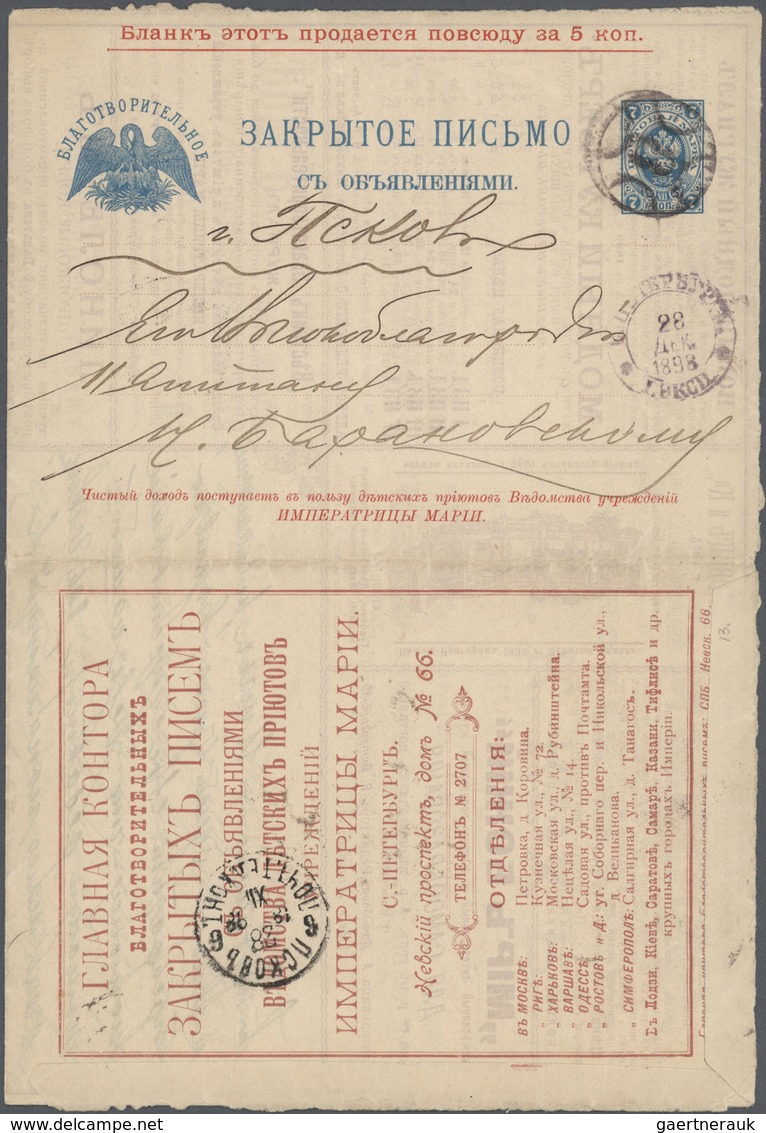 Бланкъ этотъ продается повсюду за 5 коп.
БЛАГОТВОРИТЕЛЬНОЕ
ЗАКРЫТОЕ ПИСЬМО
СЪ ОБЪЯВЛЕНІЯМИ.
7
7
г. Псковъ
Его Высокоблагородію
Капитану
Барановскому
28
ДЕК
1898
Чистый доходъ поступаетъ въ пользу дѣтскихъ пріютовъ Вѣдомства учрежденій
ИМПЕРАТРИЦЫ МАРІИ.
ГЛАВНАЯ КОНТОРА
БЛАГОТВОРИТЕЛЬНЫХЪ
ЗАКРЫТЫХЪ ПИСЕМЪ
ОБЪЯВЛЕНІЯМИ
ДѢТСКИХЪ ПРІЮТОВЪ
УЧРЕЖДЕНІЙ
ИМПЕРАТРИЦЫ МАРІИ.
С.-ПЕТЕРБУРГЪ.
Невскій проспектъ, домъ № 66.
ТЕЛЕФОНЪ № 2707
ОТДѢЛЕНІЯ:
ВЪ МОСКВѢ: Петровка, д Коровина.
„ РИГѢ: Кузнечная ул., № 72.
„ ХАРЬКОВѢ: Московская ул., д. Рубинштейна.
„ ВАРШАВѢ: Нецѣлая ул., № 14.
„ ОДЕССѢ: Садовая ул., противъ Почтамта.
„ РОСТОВѢ н-Д.: уг. Соборнаго пер. и Никольской ул.,
д. Великанова.
„ СИМФЕРОПОЛѢ: Салгирная ул., д. Танагосъ.
Въ Лодзи, Кіевѣ, Саратовѣ, Самарѣ, Казани, Тифлисѣ и др.
крупныхъ городахъ Имперіи.
СПБ Невск. 66.
13.
ПСКОВЪ
28
XII
98
gaertnerauk
© www.delcampe.net